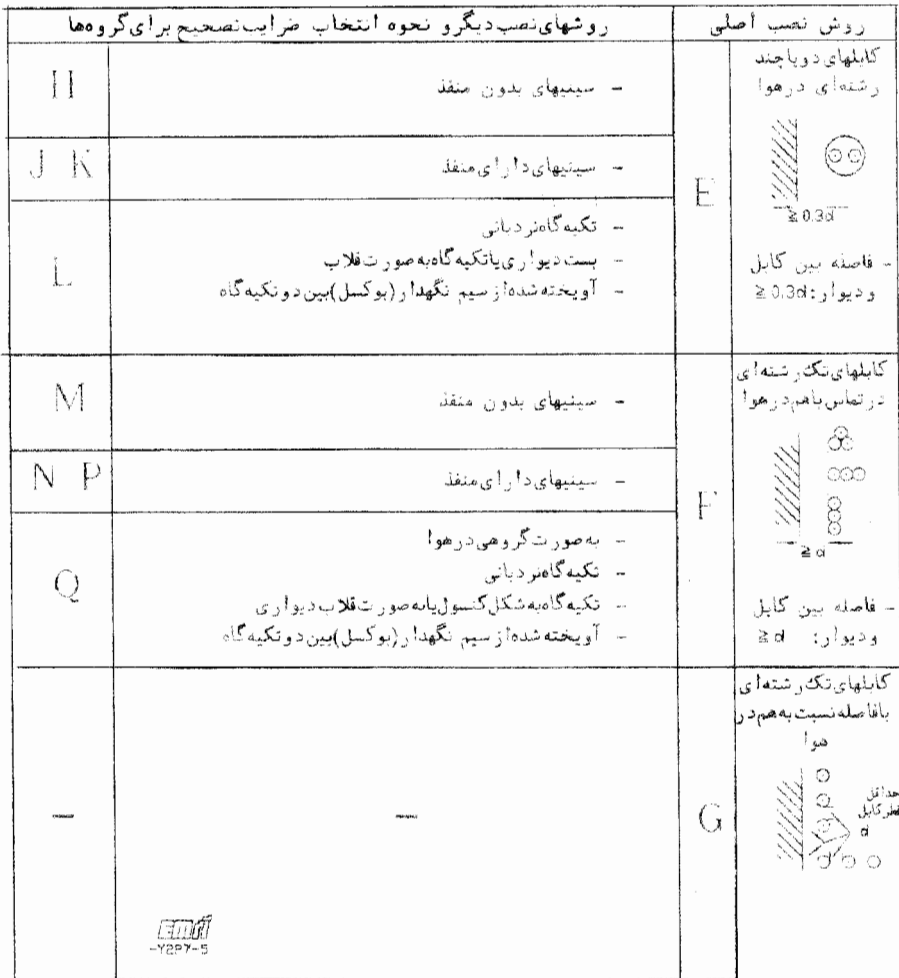 روش نصب اصلی
روشهای نصب دیگر و نحوه انتخاب ضرایب تصحیح برای گروه‌ها
کابلهای دو یا چند
رشته‌ای در هوا
≧ 0.3d
- فاصله بین کابل
و دیوار: ≧ 0.3d
E
- سینیهای بدون منفذ
H
- سینیهای دارای منفذ
J K
- تکیه‌گاه نردبانی
- بست دیواری یا تکیه‌گاه به صورت قلاب
- آویخته شده از سیم نگهدار (بوکسل) بین دو تکیه‌گاه
L
کابلهای تک رشته‌ای
در تماس باهم در هوا
≧ d
- فاصله بین کابل
و دیوار: ≧ d
F
- سینیهای بدون منفذ
M
- سینیهای دارای منفذ
N P
- به صورت گروهی در هوا
- تکیه‌گاه نردبانی
- تکیه‌گاه به شکل کنسول یا به صورت قلاب دیواری
- آویخته شده از سیم نگهدار (بوکسل) بین دو تکیه‌گاه
Q
کابلهای تک رشته‌ای
با فاصله نسبت به هم در
هوا
حداقل
قطر کابل
d
G
-
-
-Y2P7-5